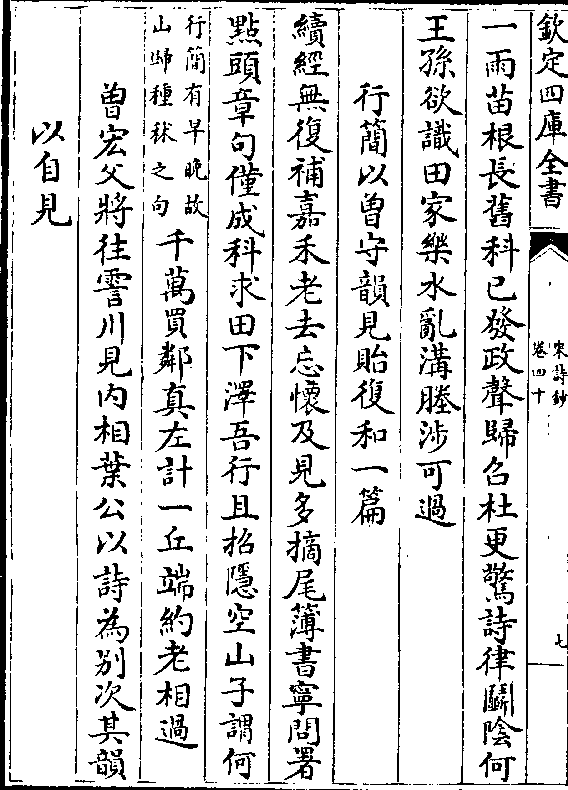 欽定四庫全書
宋詩鈔
卷四十
七
一雨苗根長舊科已發政聲歸召杜更驚詩律鬭陰何
王孫欲識田家樂水亂溝塍涉可過
行簡以曾守韻見貽復和一篇
續經無復補嘉禾老去忘懷及見多摘尾簿書寧問署
點頭章句僅成科求田下澤吾行且招隱空山子謂何
行簡有早晚故
山歸種秫之句
千萬買鄰真左計一丘端約老相過
曽宏父將往霅川見内相葉公以詩為別次其韻
以自見